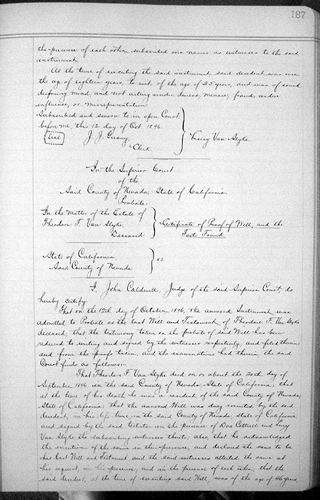 187
the presence of each other, subscribed our names as witnesses to the said
instrument.
At the time of executing the said instrument, said decedent was over
the age of eighteen years, to wit, of the age of 25 years, and was of sound
disposing mind, and not acting under duress, menace, fraud, undue
influence, or misrepresentation.
Subscribed and sworn to in open Court
before me, this 12 day of Oct 1896.
Seal J. J. Greany, Lucy Van Slyke.
Clerk
In the Superior Court
of the
Said County of Nevada, State of California
Probate.
In the Matter of the Estate of
Theodore F. Van Slyke, Certificate of Proof of Will, and the
Deceased Facts Found.
State of California,
Said County of Nevada ss
I, John Caldwell, Judge of the said Superior Court, do
hereby certify:
That on the 12th day of October, 1896, the annexed Instrument was
admitted to Probate as the last Will and Testament of Theodore F. Van Slyke
deceased; that the testimony taken on the probate of said Will has been
reduced to writing and signed by the witnesses respectively, and filed therein
and from the proofs taken, and the examinations had therein, the said
Court finds as follows:
That Theodore F. Van Slyke died on or about the 20th day of
September 1896, in the said County of Nevada, State of California; that
at the time of his death he was a resident of the said County of Nevada,
State of California; that the annexed Will was duly executed by the said
decedent, in his life time, in the said County of Nevada, State of California,
and signed by the said testator in the presence of and Lucy
Van Slyke the subscribing witnesses thereto; also, that he acknowledged
the execution of the same in their presence, and declared the same to be
his last Will and Testament, and the said witnesses attested the same at
his request, in his presence, and in the presence of each other; that the
said decedent, at the time of executing said Will, was of the age of